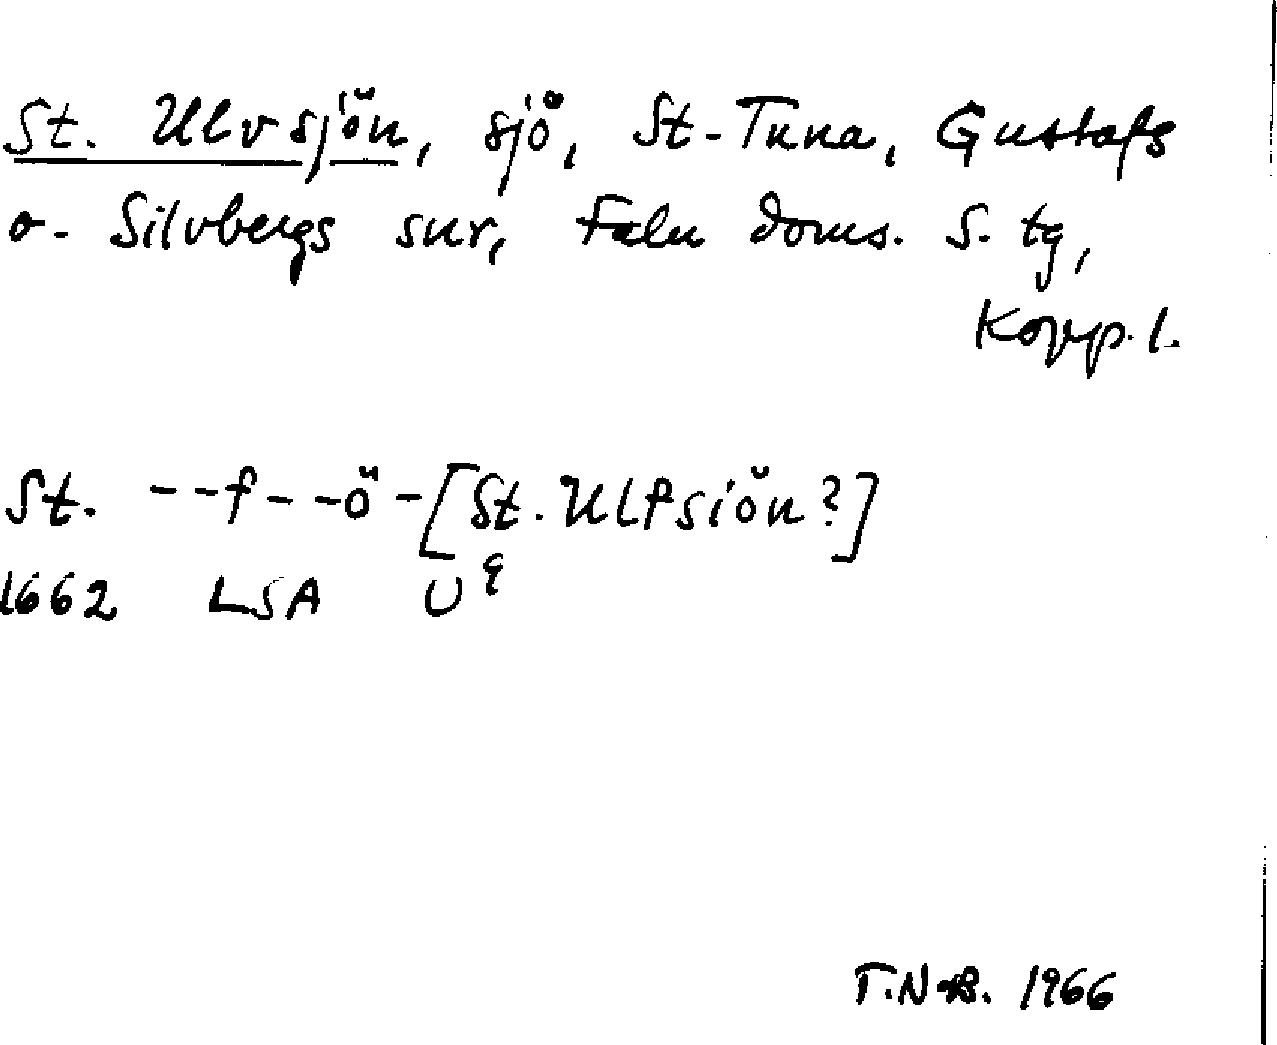 St. Ulvsjön, sjö, St-Tuna, Gustafs
o. Silvbergs snr, Falu doms. S. tg,
Kopp. l.
St. - - f - - ö - [St. Ulfsiön?]
1662 LSA U
1966